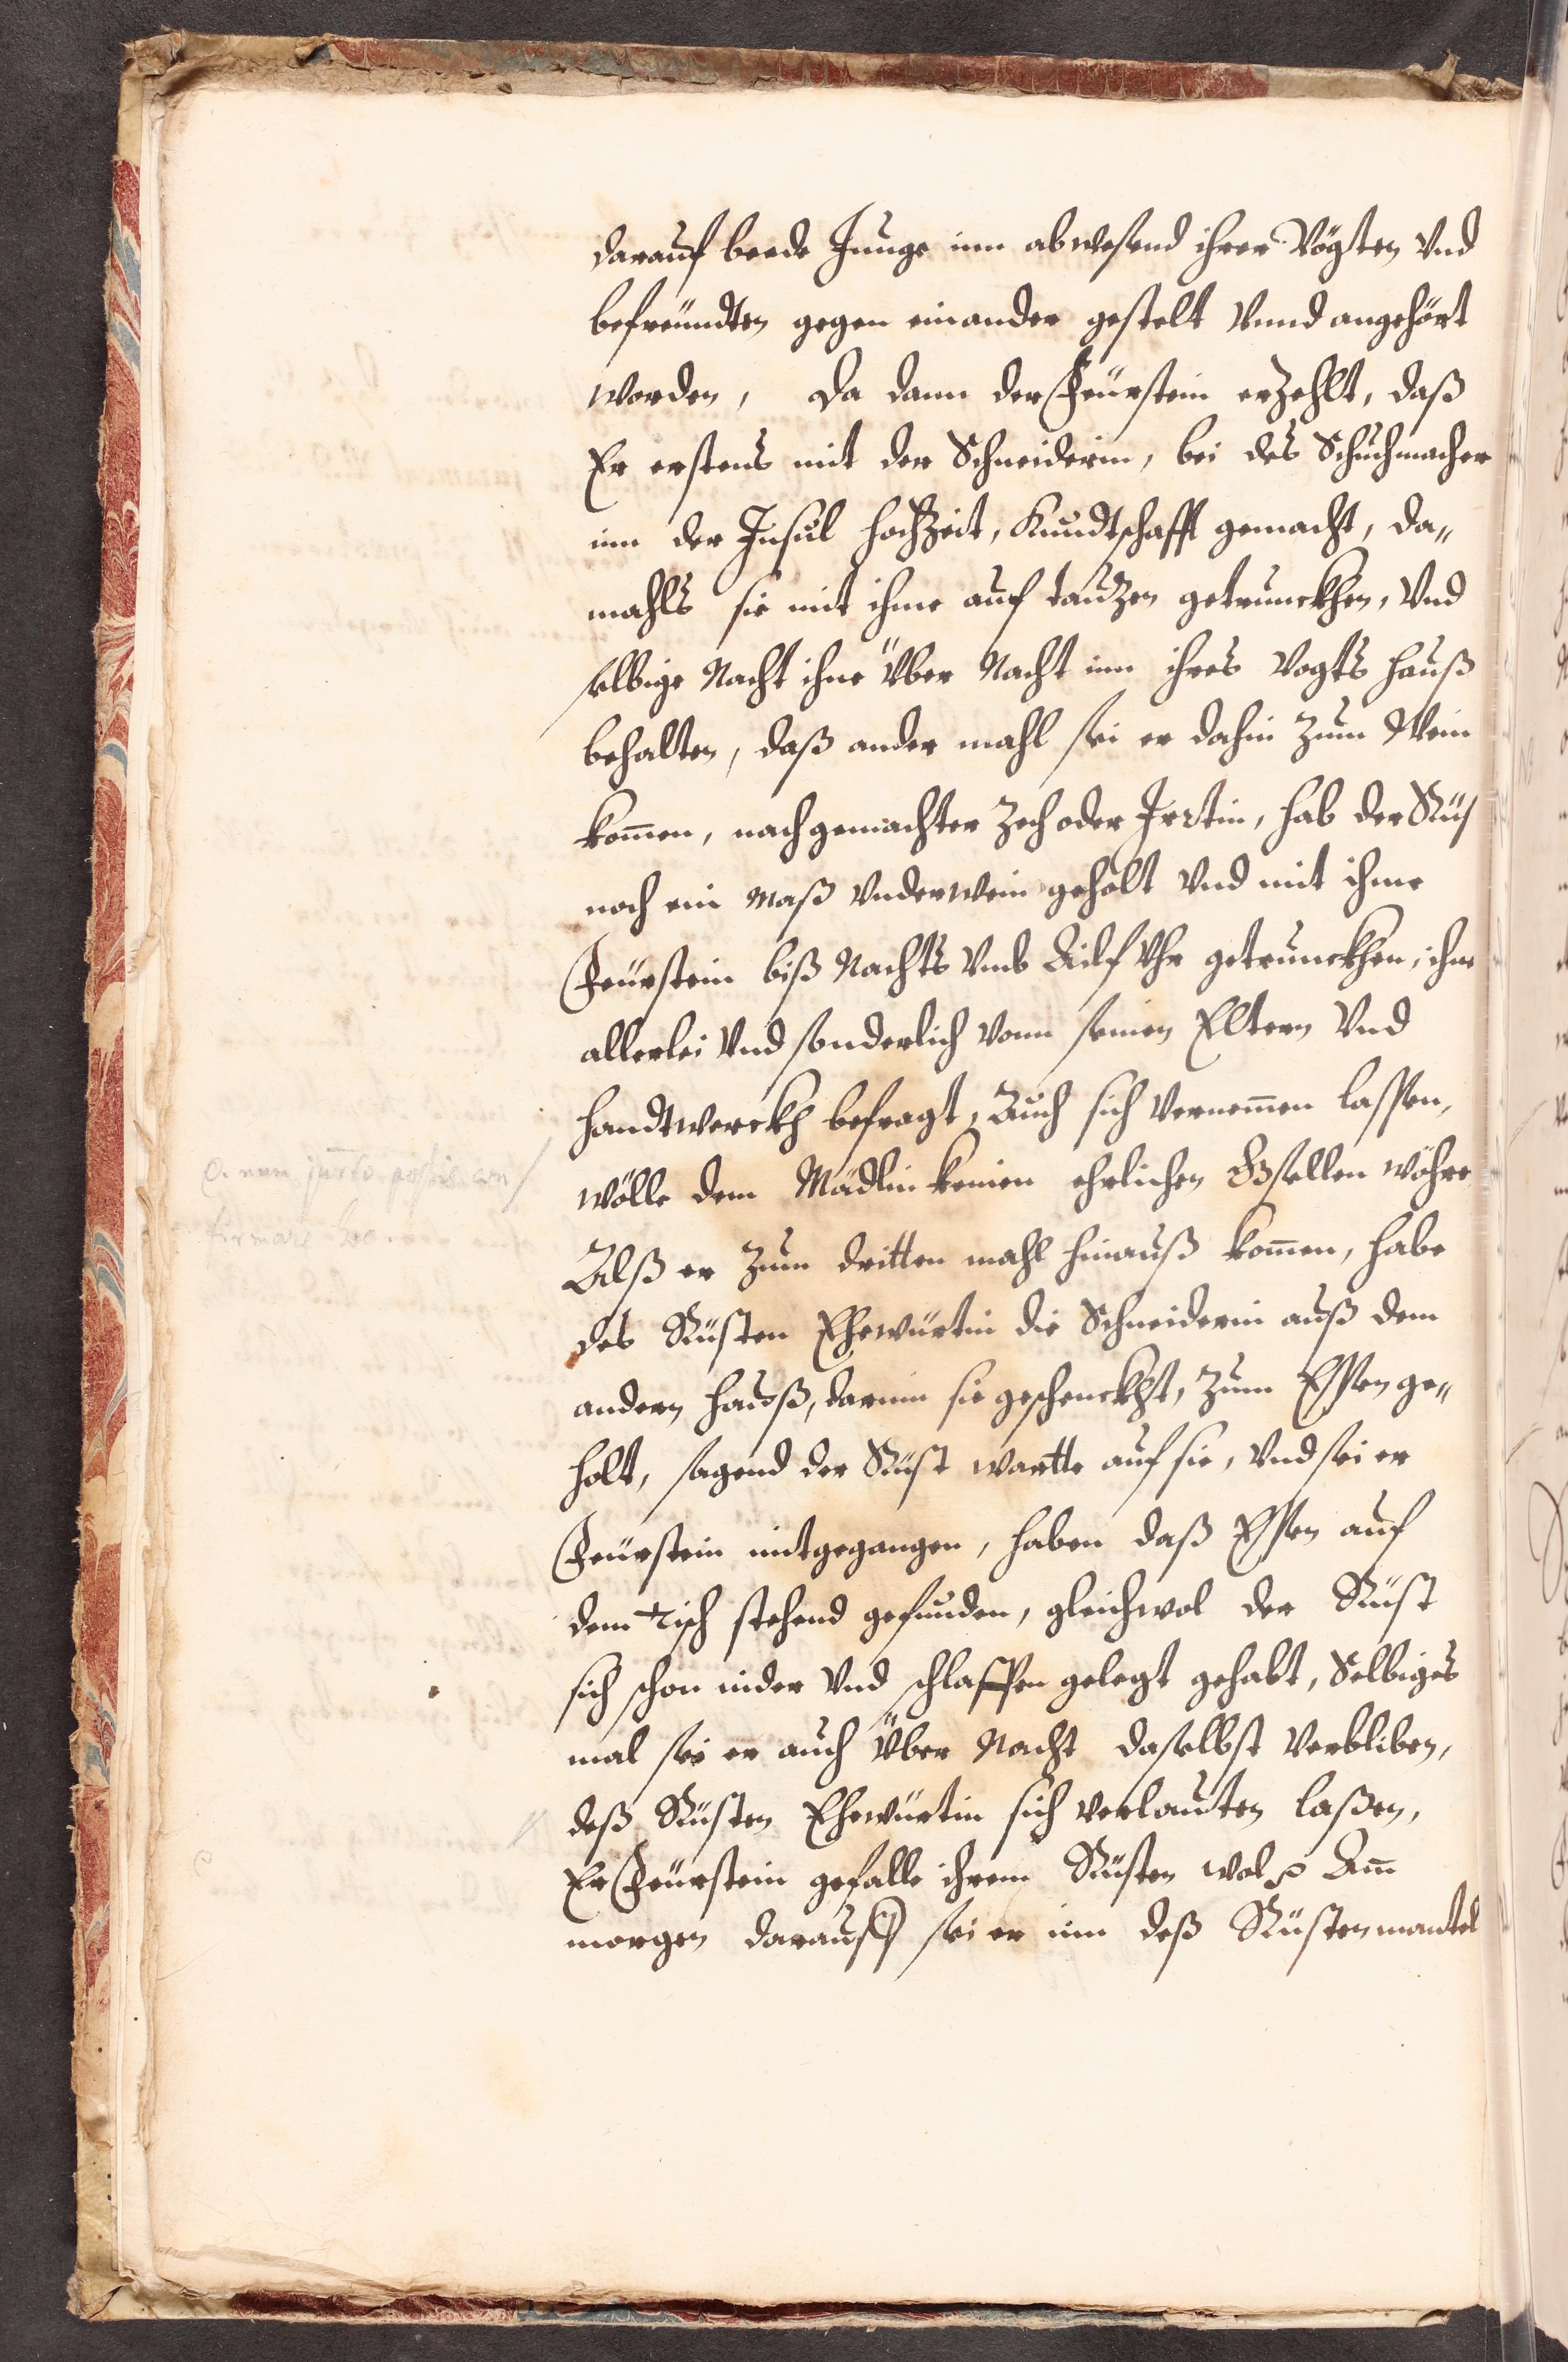 darauf beede Junge inn abwesend ihrer Vögten vnd
befreundten gegen einander gestelt vnnd angehört
worden, Da dann der Feurstein erzehlt, daß
Er erstens mit der Schneiderin, bei des Schuchmacher
inn der Insul hochzeit, Kundtschafft gemacht, da„
mahls sie mit ihme auf dantzen getrunckhen, vnd
selbige Nacht ihne über Nacht inn ihres Vogts hauß
behalten, daß ander mahl sei er dahin zum Wein
komen, nach gemachter Zech oder Irttin, hab der Rüst
noch ein maß vnderwein geholt vnd mit ihme
Feurstein biß Nachts vmb Ailf Vhr getrunckhen, ihne
allerlei vnd sonderlich vonn seinen Eltern vnd
handtwerckh befragt, Auch sich vernemen lassen,
wölle dem Mädlin keinen ehrlichen Gsellen wöhren
Alß er zum dritten mahl hinauß komen, habe
des Rüsten Ehewürtin die Schneiderin auß dem
andern hauß, darinn sie geschenckht, zum Essen ge„
holt, sagend der Rüst wartte auf sie, vnd sei er
Feurstein mitgegangen, haben daß Essen auf
dem Tisch stehend gefunden, gleichwol der Rüst
sich schon nider vnd schlaffen gelegt gehabt, Selbiges
mal sei er auch über Nacht daselbst verbliben,
deß Rüsten Ehewürtin sich verlauten laßen,
Er Feurstein gefalle ihrem Rüsten wol Am
morgen darauf sei er inn deß Rüsten mantel